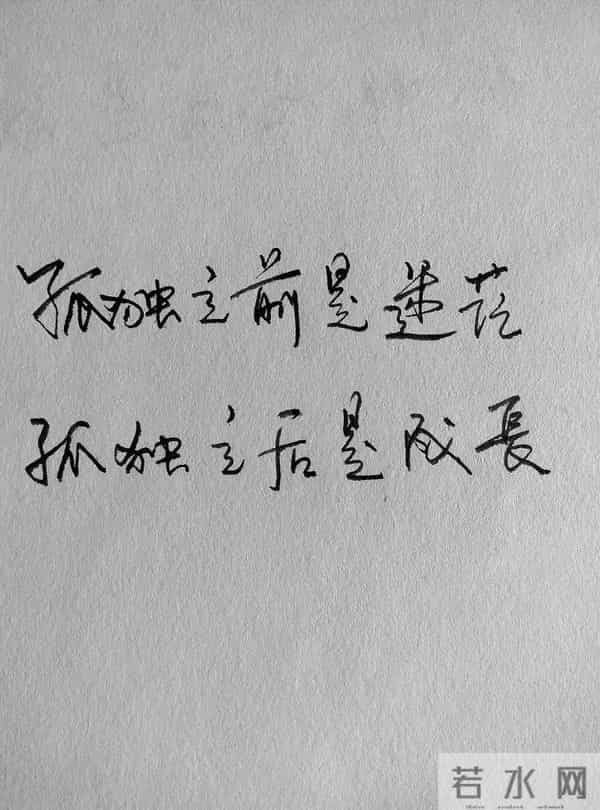 孤独之前是迷茫
孤独之后是成長
若水网